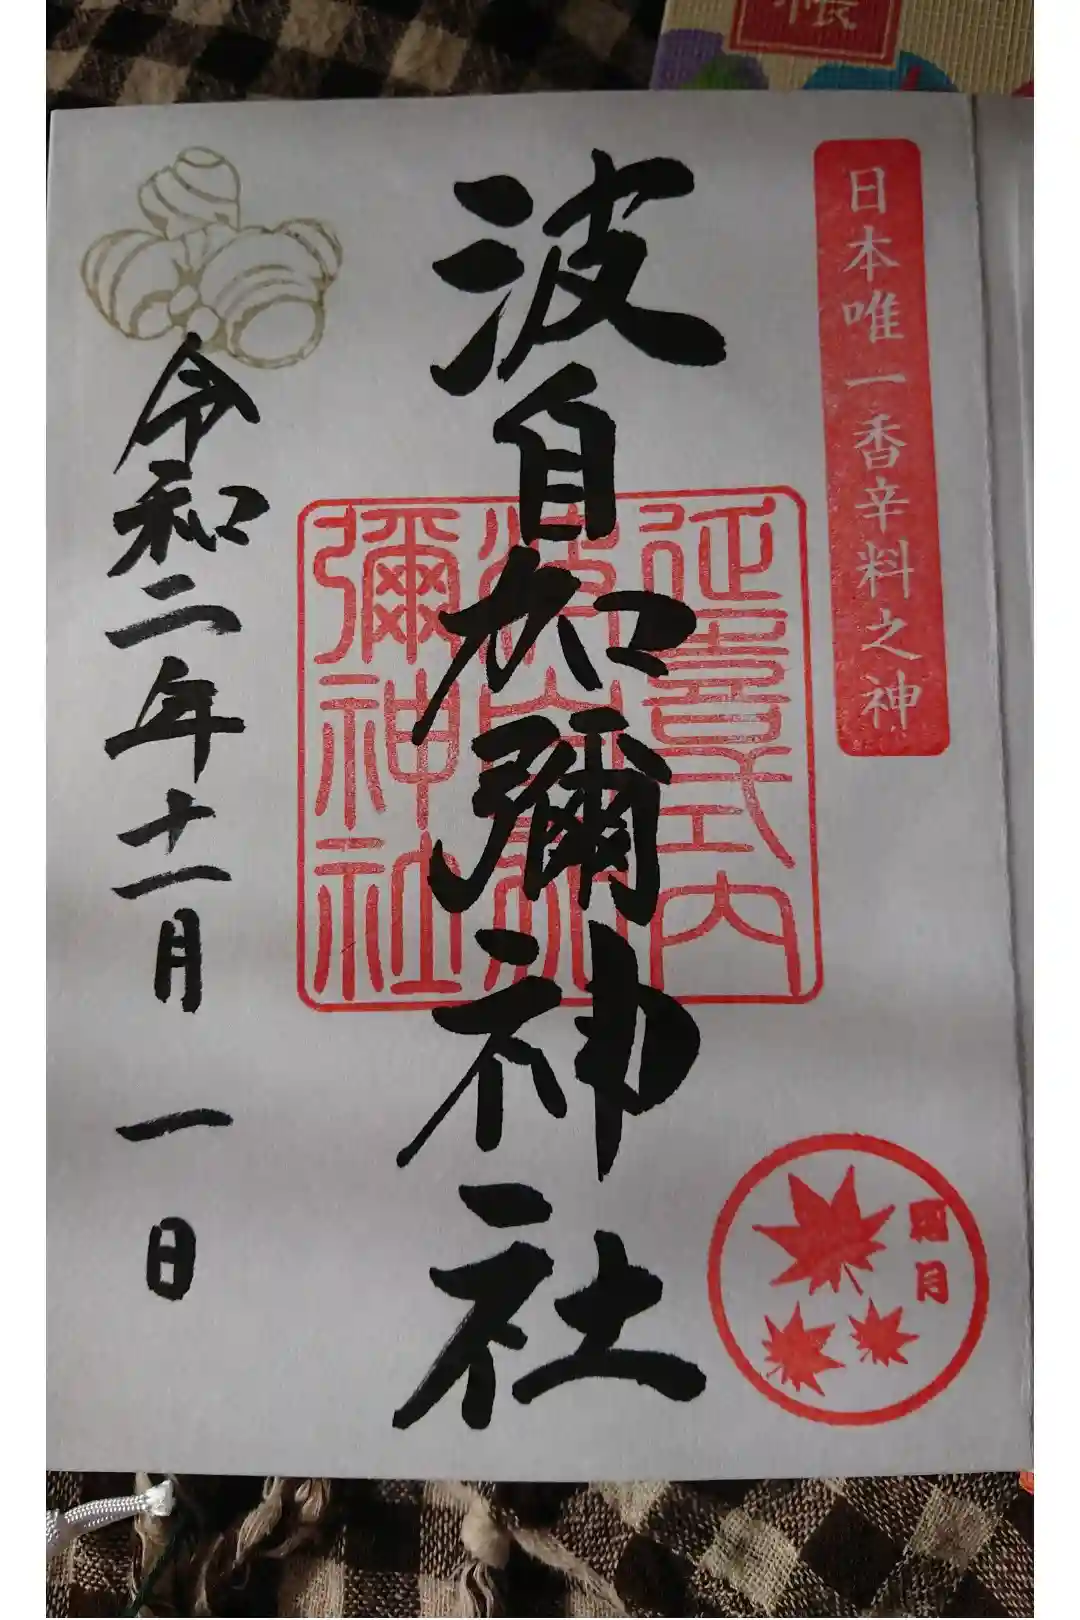 日本唯一香辛料之神
波自加彌神社
延喜式内
波自加
彌神社
令和二年十一月一日
霜月
帳